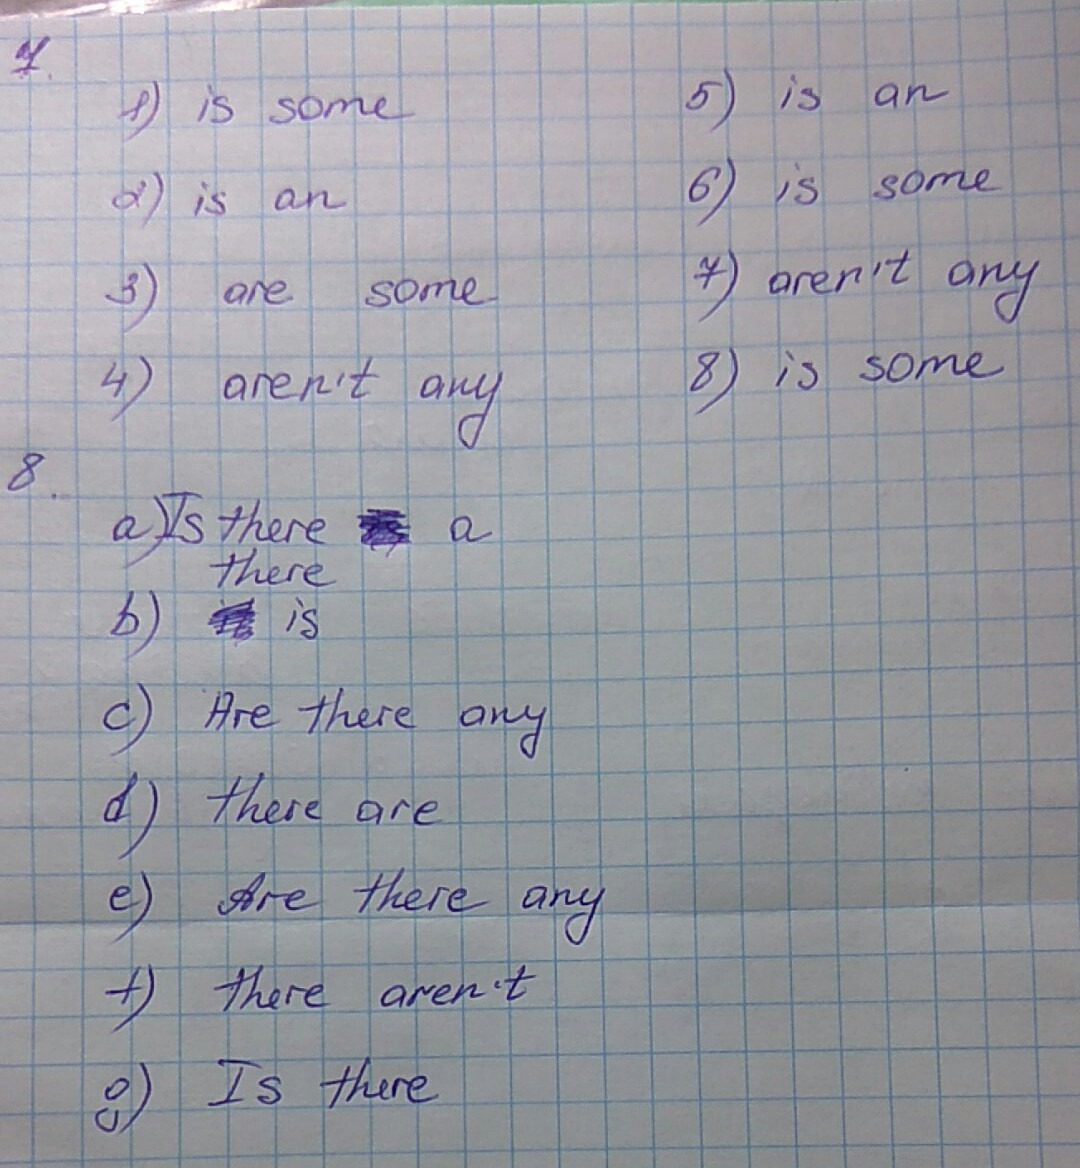 7.
1) is some
2) is an
3) are some
4) aren't any
5) is an
6) is some
7) aren't any
8) is some
8.
a) Is there a
there
b) is
c) Are there any
d) there are
e) Are there any
f) there aren't
g) Is there